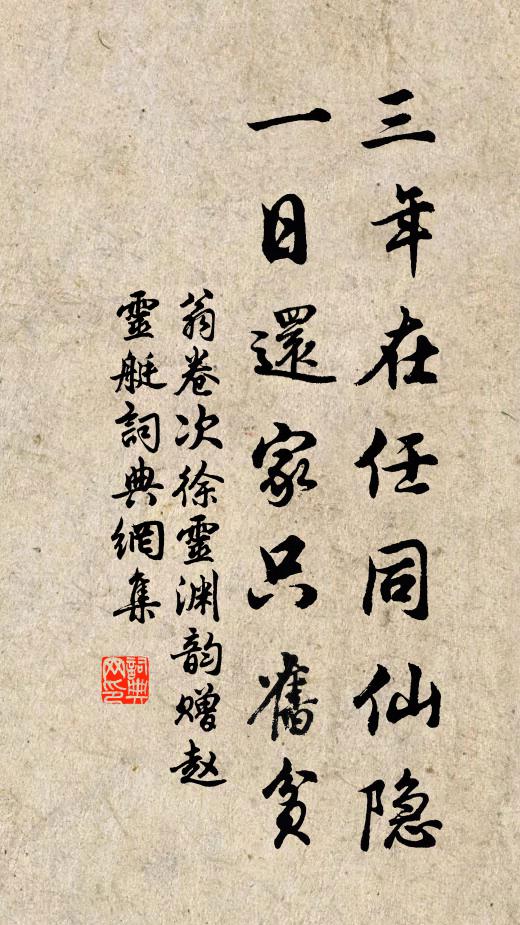 三年在任同仙隐
一日還家只舊貧
翁卷次徐靈渊韵赠赵
靈艇詞典網集
詞典網印